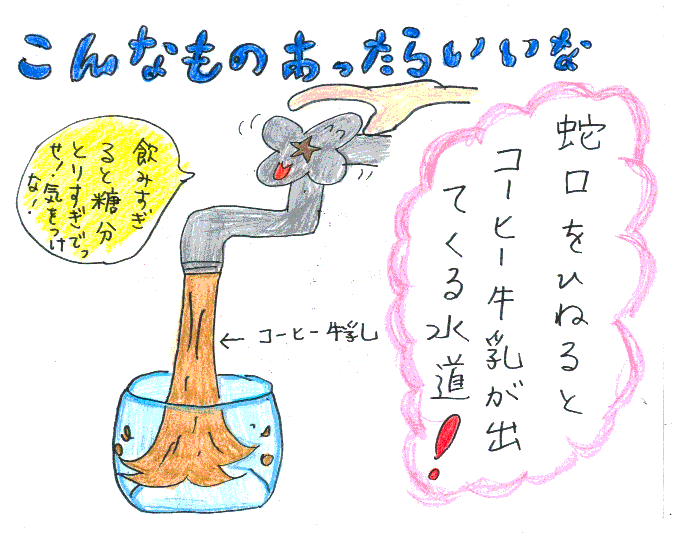 こんなものあったらいいな
蛇口をひねると
コーヒー牛乳が出
てくる水道!
飲みすぎ
ると糖分
とりすぎでっ
せ!気をつけ
な!
←コーヒー牛乳